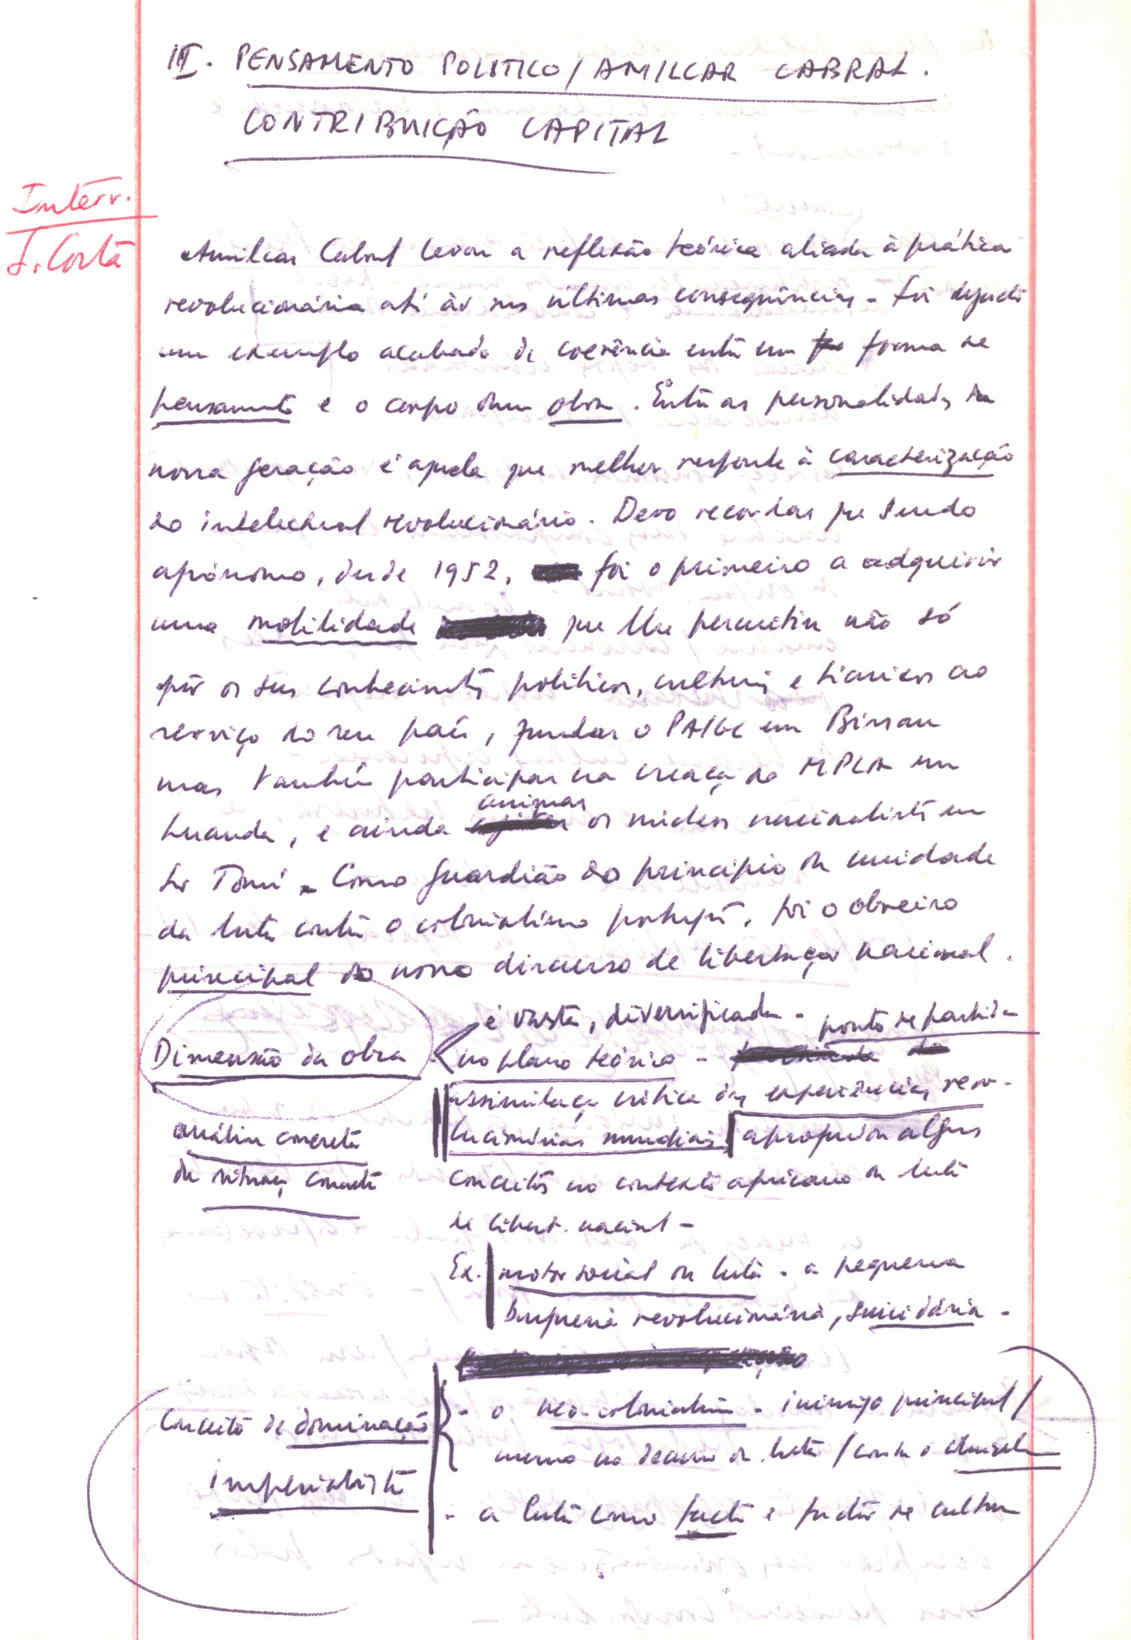 III. PENSAMENTO POLITICO / AMILCAR CABRAL.
CONTRIBUIÇÃO CAPITAL
Interv.
J. Costa
Amilcar Cabral levou a reflexão teórica aliada à prática
revolucionária até às suas últimas consequências - Foi
um exemplo acabado de coerência entre uma forma de
pensamento e o corpo duma obra. Entre as personalidades da
nossa geração é aquela que melhor responde à caracterização
do intelectual revolucionário. Devo recordar que sendo
agrónomo, desde 1952, foi o primeiro a adquirir
uma mobilidade que lhe permitiu não só
pôr os seus conhecimentos políticos, culturais e técnicos ao
serviço do seu país, fundar o PAIGC em Bissau
mas também participar na criação do MPLA em
Luanda, e ainda animar os núcleos nacionalistas em
São Tomé - Como guardião do princípio da unidade
da luta contra o colonialismo português, foi o obreiro
principal do novo discurso de libertação nacional.
Dimensão da obra
é vasta, diversificada -
no plano teórico - ponto de partida
assimilação crítica das experiências revo-
lucionárias mundiais, apropriou alguns
conceitos no contexto africano da luta
de libert. nacional -
análise concreta
da situação concreta
Ex. motor social da luta - a pequena
burguesia revolucionária, suicidária -
Conceito de dominação
imperialista
- o neo-colonialismo - inimigo principal /
mesmo no decurso da luta / contra o
- a luta como facto e factor de cultura